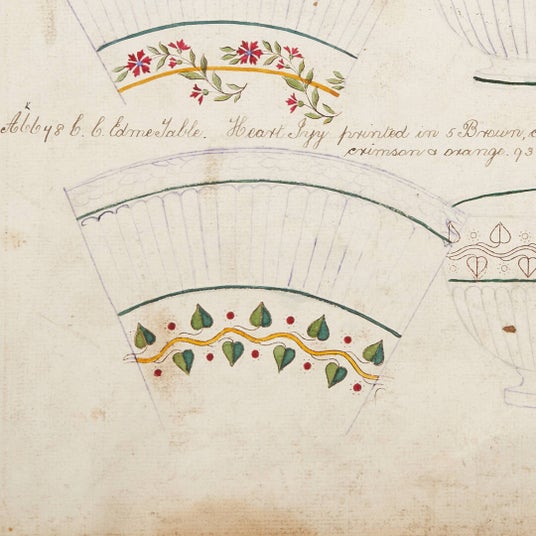 K
A6678 C. C. Edme Table. Heart Ivy printed in 5 Brown, c
crimson & orange. 93